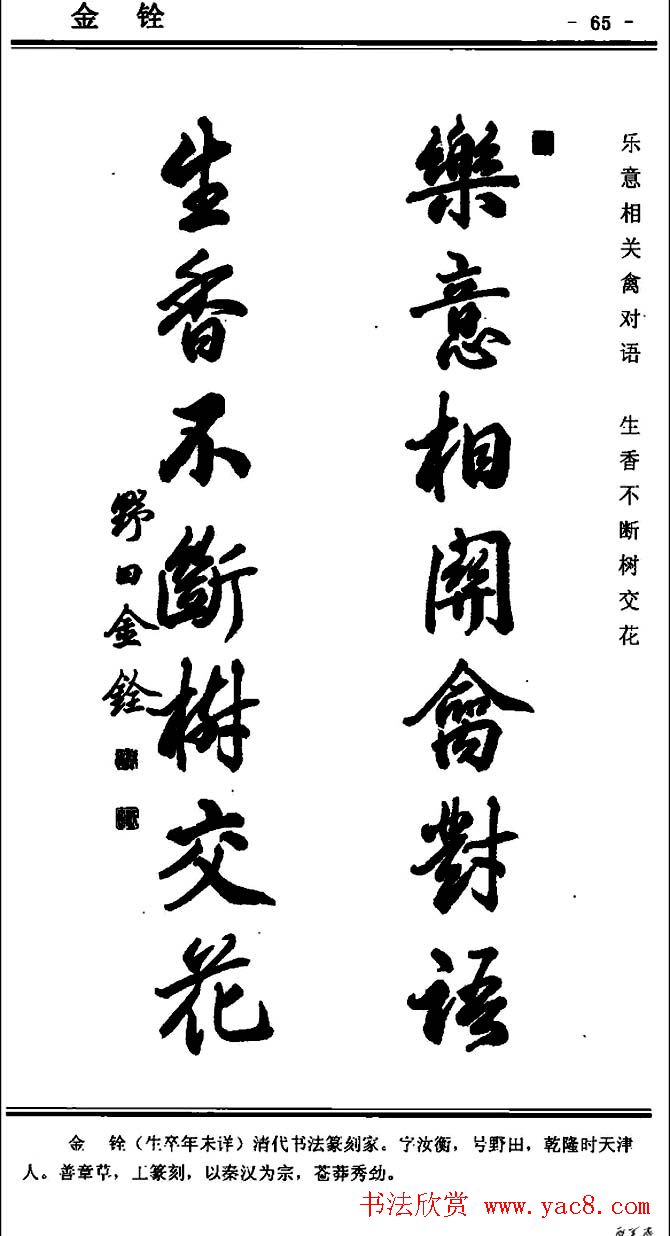 金 铨
- 65 -
乐意相关禽对语 生香不断树交花
樂意相關禽對語
生香不斷樹交花
野田金銓
金 铨（生卒年未详）清代书法篆刻家。字汝衡，号野田，乾隆时天津
人。善章草，工篆刻，以秦汉为宗，苍莽秀劲。
书法欣赏 www.yac8.com